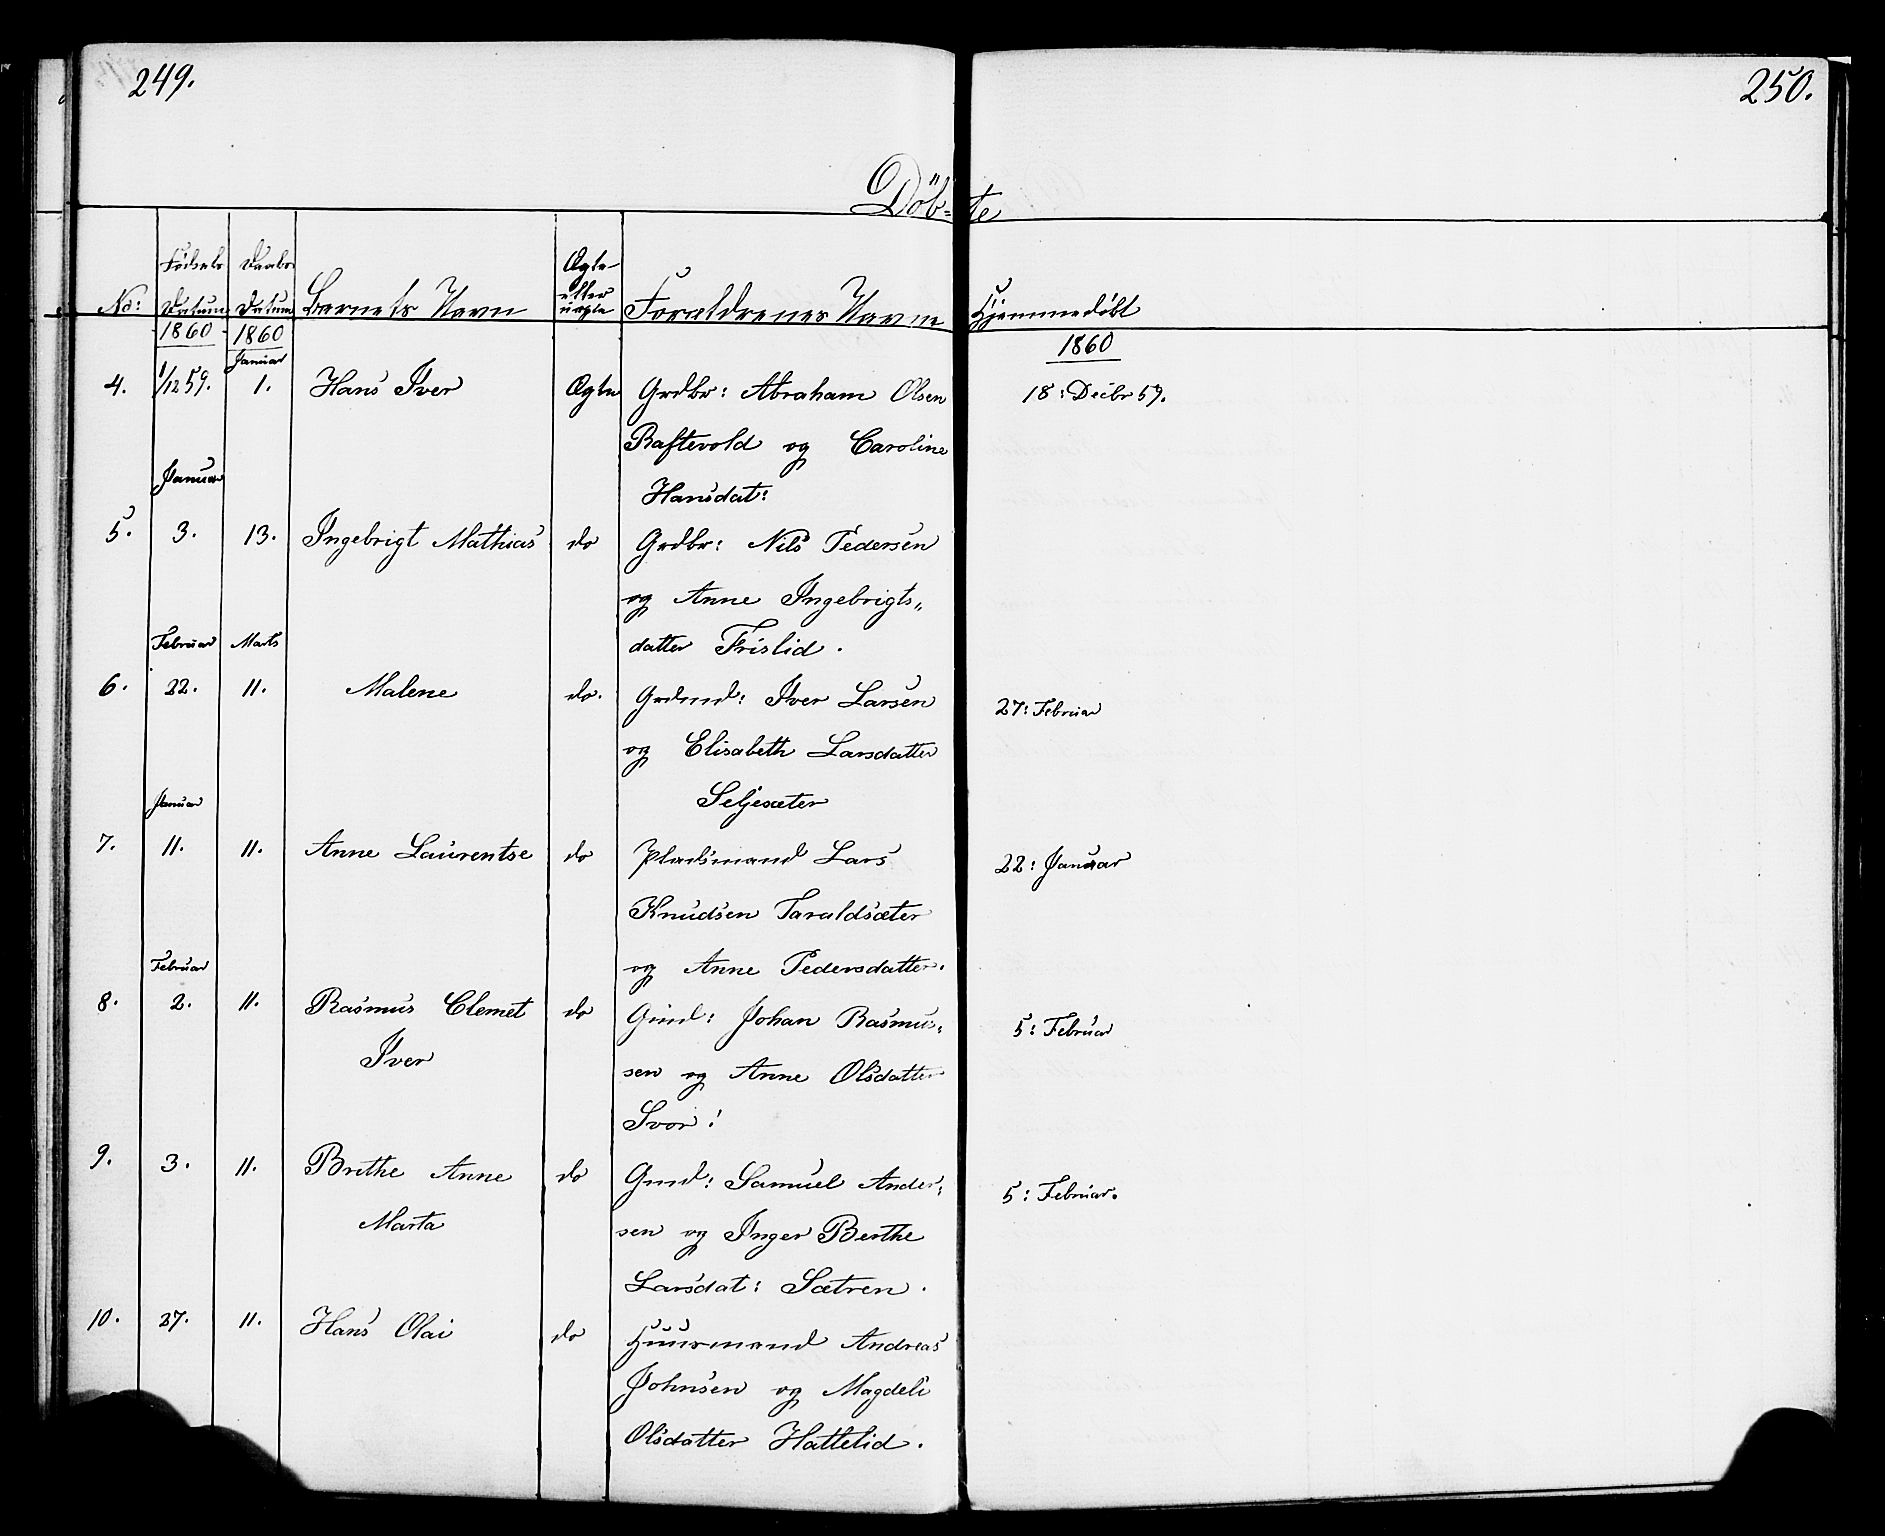 249.
250.
Döb-te
No:
Födsels Datum
Daabs Datum
Barnets Navn
Ægte eller uægte
Forældrenes Navne
Hjemmedöbt
1860
1860
1860
Januar
4. 1/12 59. 1. Hans Iver Ægte Grdbr: Abraham Olsen 18: Decbr 59.
Raftevold og Caroline
Hansdat:
Januar
5. 3. 13. Ingebrigt Mathias do Grdbr: Nils Pedersen
og Anne Ingebrigts„
datter Frislid.
Februar Marts
6. 22. 11. Malene do. Grdmd: Iver Larsen 27: Februar
og Elisabeth Larsdatter
Seljesæter
Januar
7. 11. 11. Anne Laurentse do Pladsmand Lars 22: Januar
Knudsen Taraldsæter
og Anne Pedersdatter.
Februar
8. 2. 11. Rasmus Clemet do Gmd: Johan Rasmu- 5: Februar
Iver
sen og Anne Olsdatter
Svor!
9. 3. 11. Brithe Anne do Gmd: Samuel Ander- 5: Februar.
Marta
sen og Inger Berthe
Larsdat: Sætren.
10. 27. 11. Hans Olai do Huusmand Andreas
Johnsen og Magdeli
Olsdatter Hattelid.